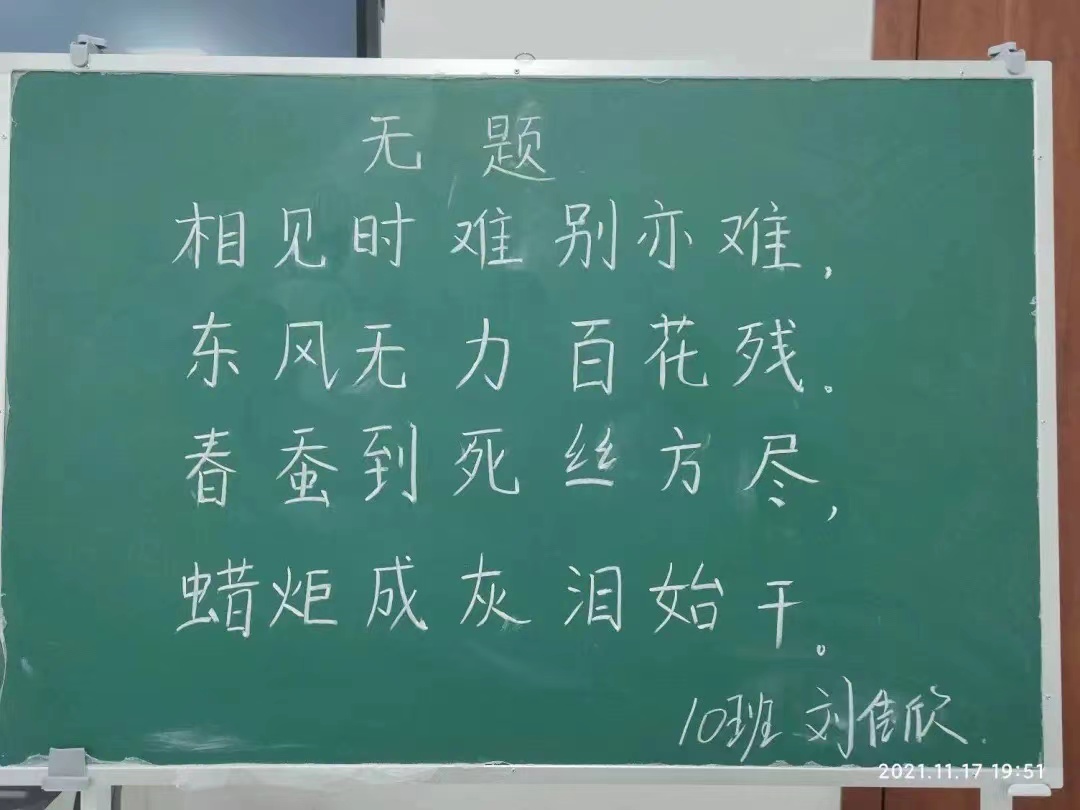 无题
相见时难别亦难，
东风无力百花残。
春蚕到死丝方尽，
蜡炬成灰泪始干。
10班 刘佳欣.
2021.11.17 19:51